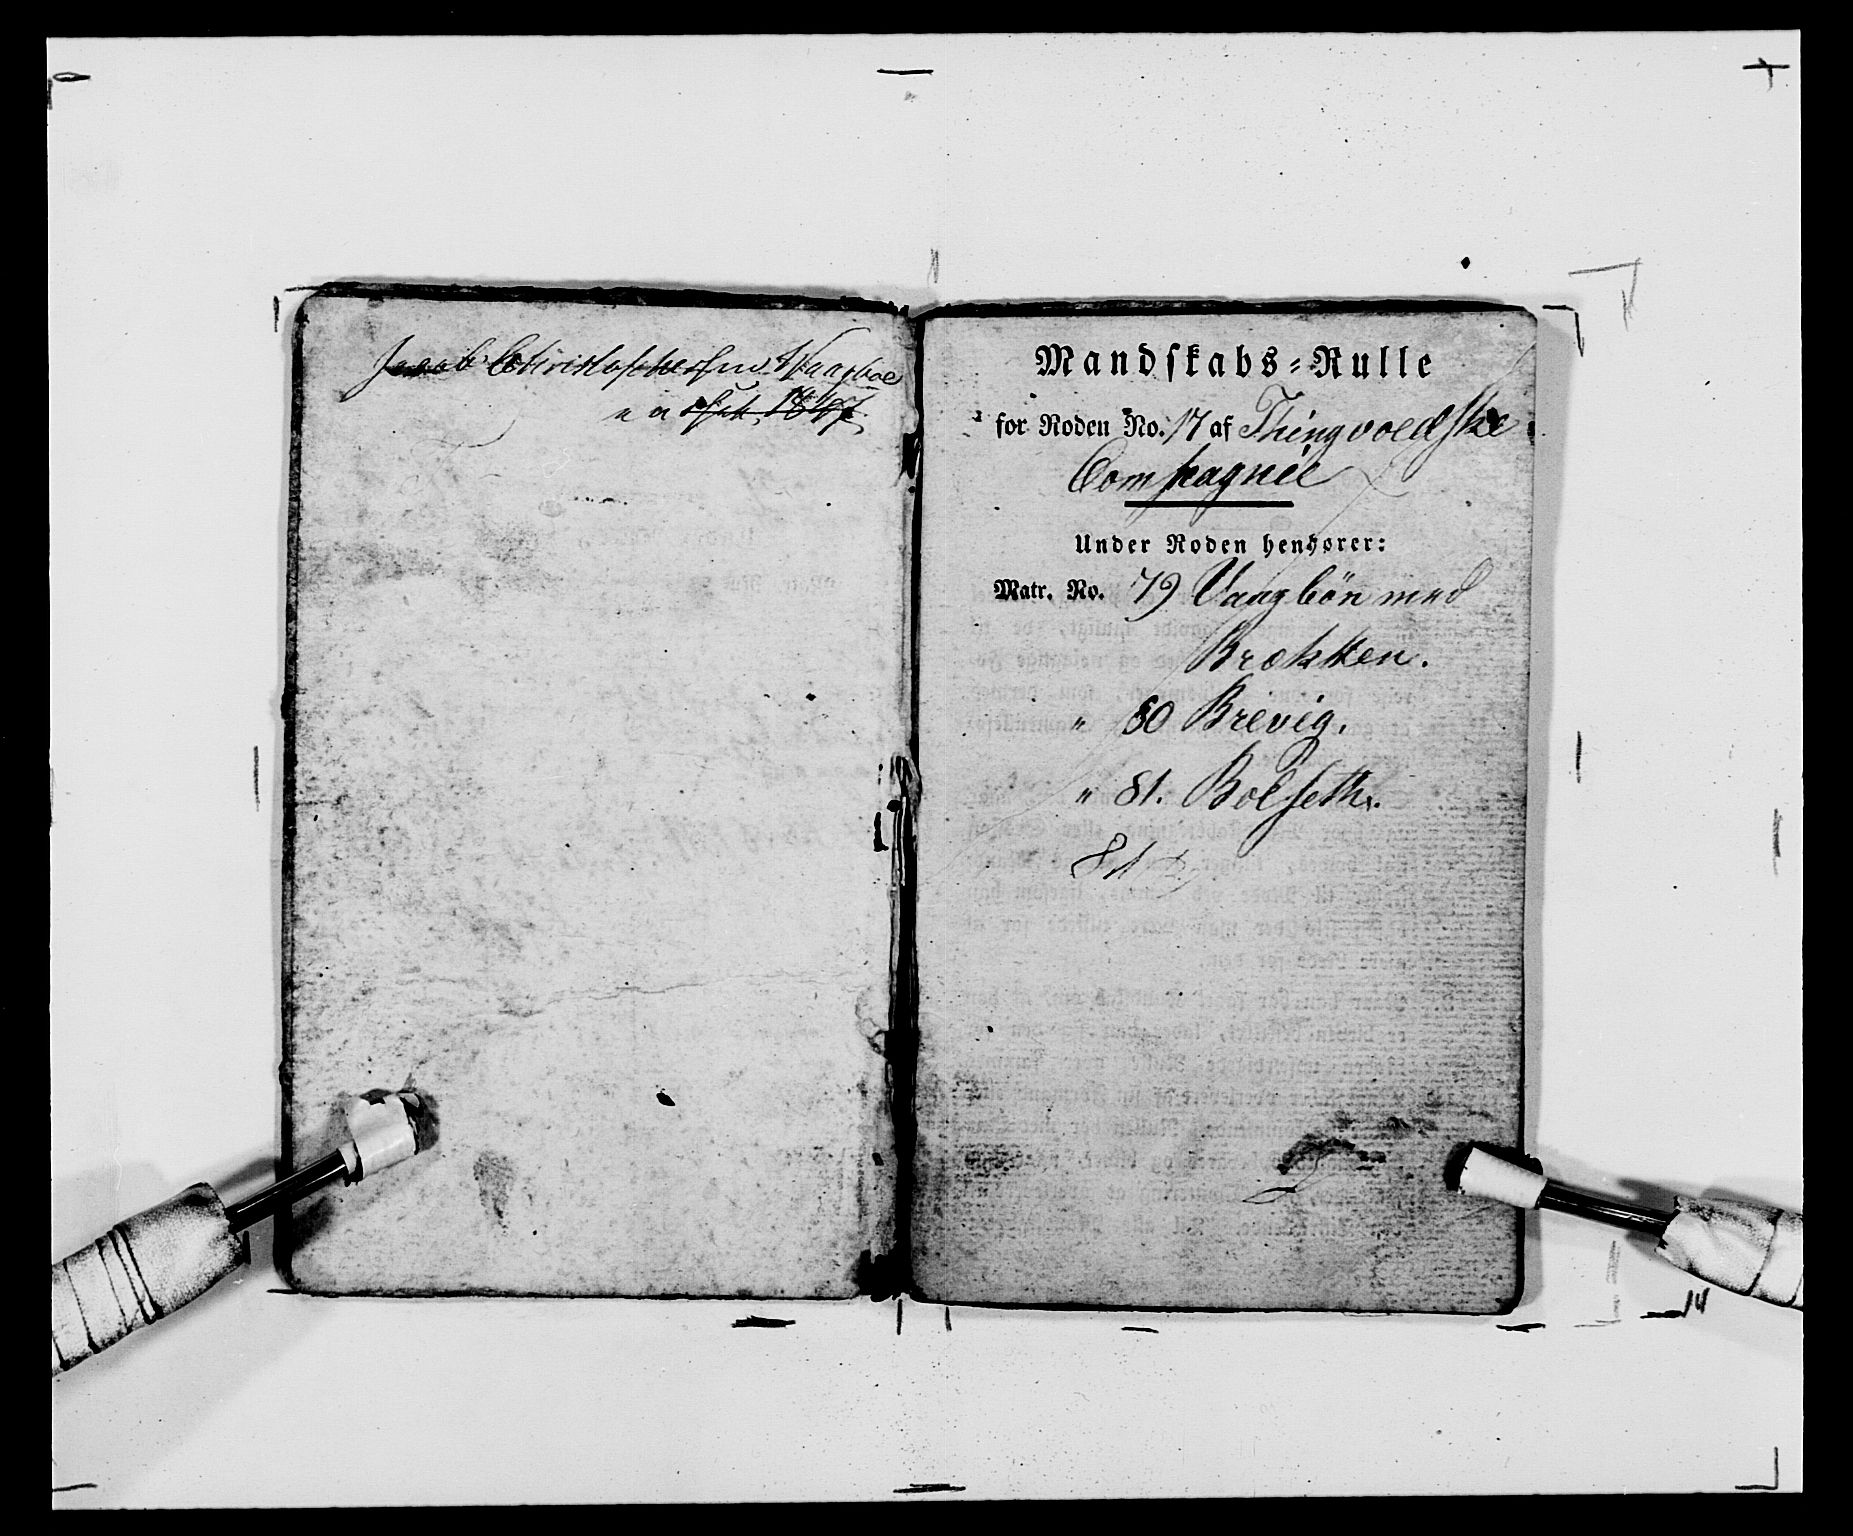 Jacob Christophersen Waagbøe
1847
Mandskabs-Rulle
for Roden No. 17 af Thingvoldske
Compagnie
Under Roden henhører:
Matr. No. 79 Vaagbön med
Brækken.
" 80 Brevig.
" 81. Bolseth.
81
14